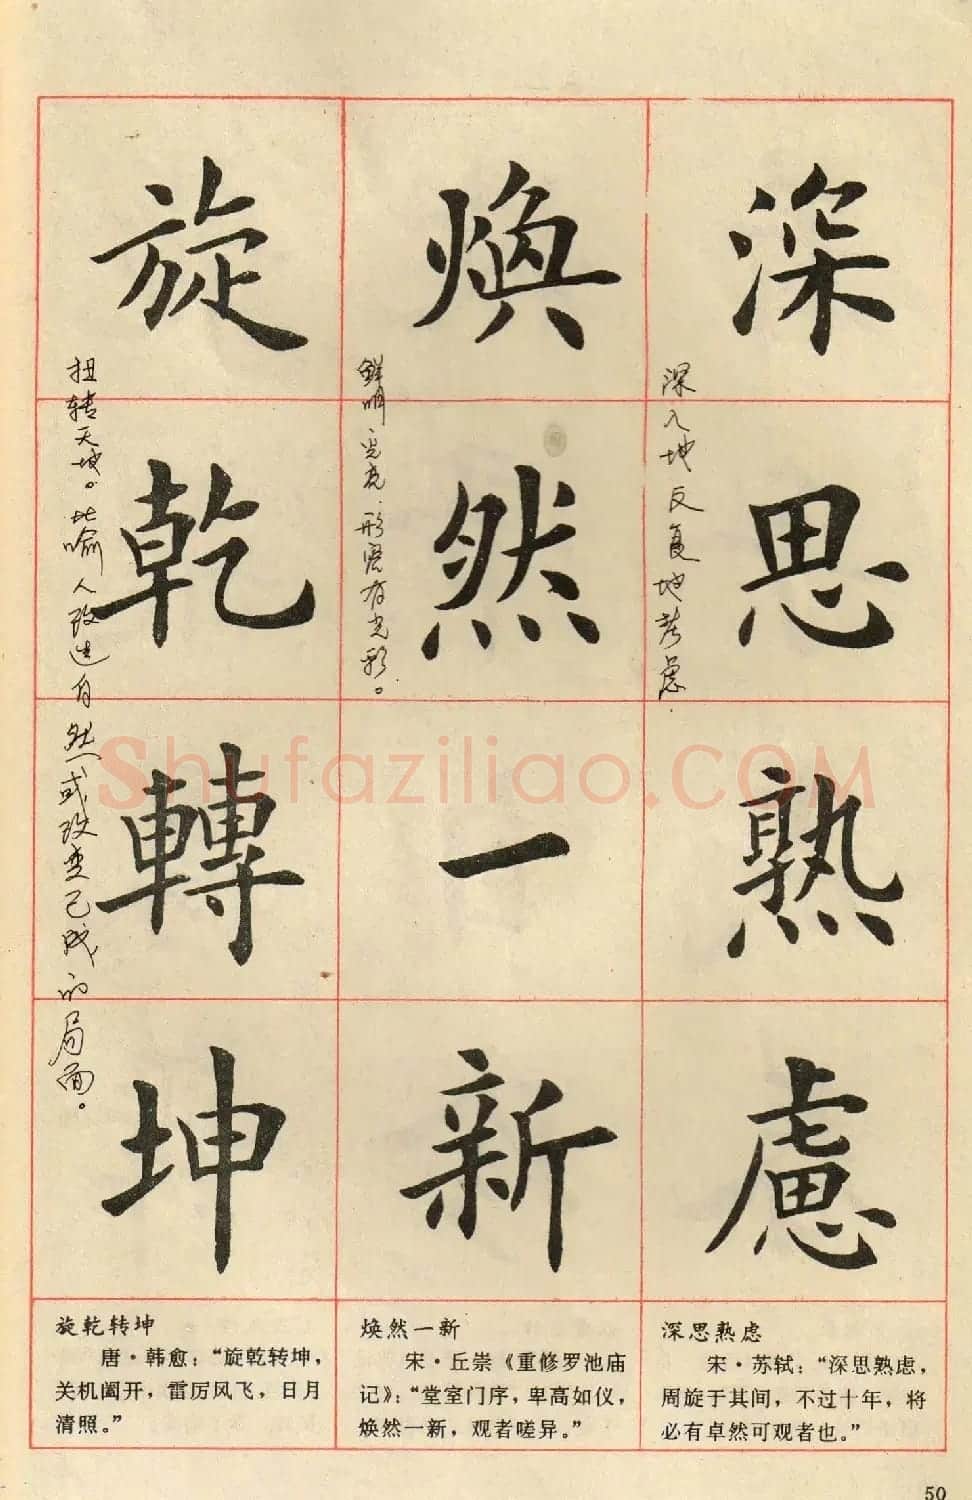 深思熟慮
深入地反复地考虑.
煥然一新
鲜明、光亮.形容有光彩。
旋乾轉坤
扭转天地。比喻人改造自然或改变已成的局面。
Shufaziliao.COM
深思熟虑
宋·苏轼：“深思熟虑，
周旋于其间，不过十年，将
必有卓然可观者也。”
焕然一新
宋·丘崇《重修罗池庙
记》：“堂室门序，卑高如仪，
焕然一新，观者嗟异。”
旋乾转坤
唐·韩愈：“旋乾转坤，
关机阖开，雷厉风飞，日月
清照。”
50